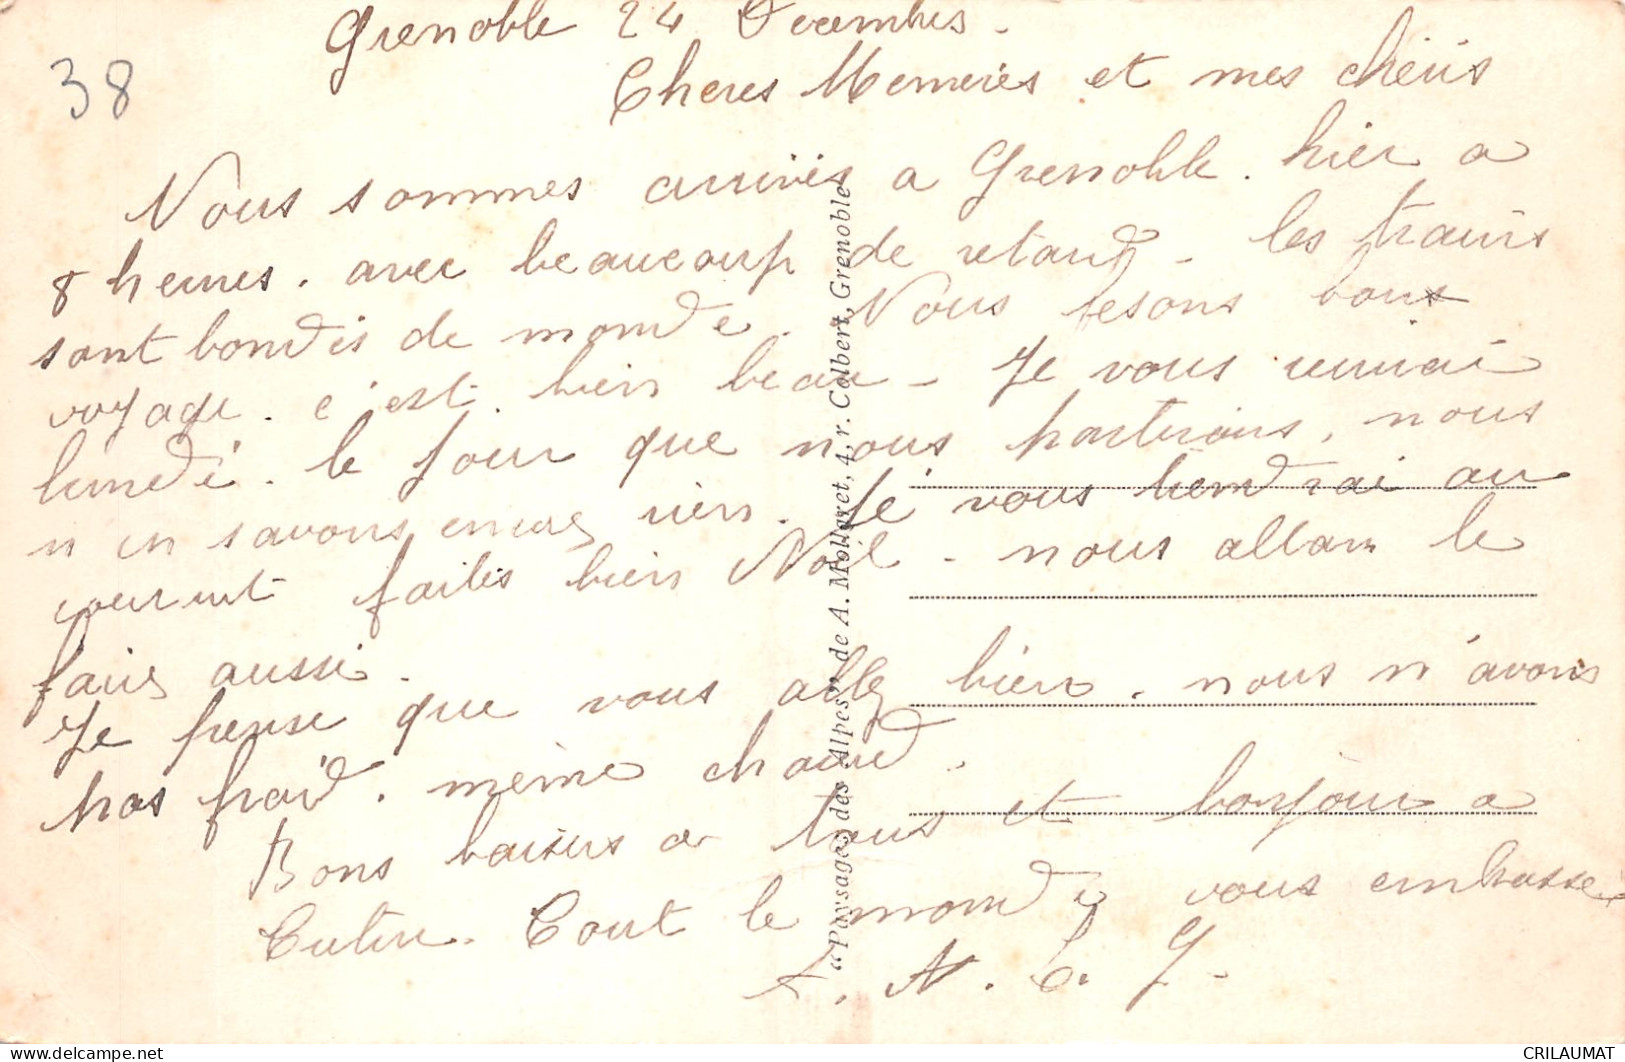 Grenoble 24 Decembre.
38
Cheres Memeres et mes chéris
Nous sommes arrivés a Grenoble. hier a
8 heures. avec beaucoup de retard - les trains
sont bondés de monde. Nous fesons bon
voyage. c'est bien beau - Je vous
lundi. le jour que nous partirons, nous
n en savons encore rien. Je vous tiendrai au
courant faites bien Noël - nous allons le
faire aussi.
Je pense que vous allez bien. nous n'avons
pas froid. même chaud.
Bons baisers a tous et bonjour a
Tout le monde vous embrasse
"Paysages des Alpes" de A. Mollaret, 4, r. Colbert, Grenoble
CRILAUMAT